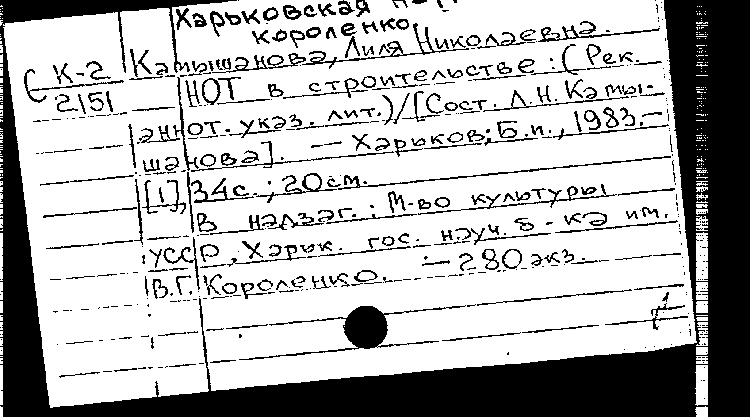 Харьковская
короленко,
С К-2 Камышанова, Лиля Николаевна.
2151 НОТ в строительстве: (Рек.
аннот. указ. лит.)/[Сост. Л.Н. Камы-
шанова]. — Харьков; Б.и., 1983.—
[1], 34с.; 20см.
В надзаг.: М-во культуры
УССР, Харьк. гос. науч. б-ка им.
В.Г. Короленко. — 280 экз.